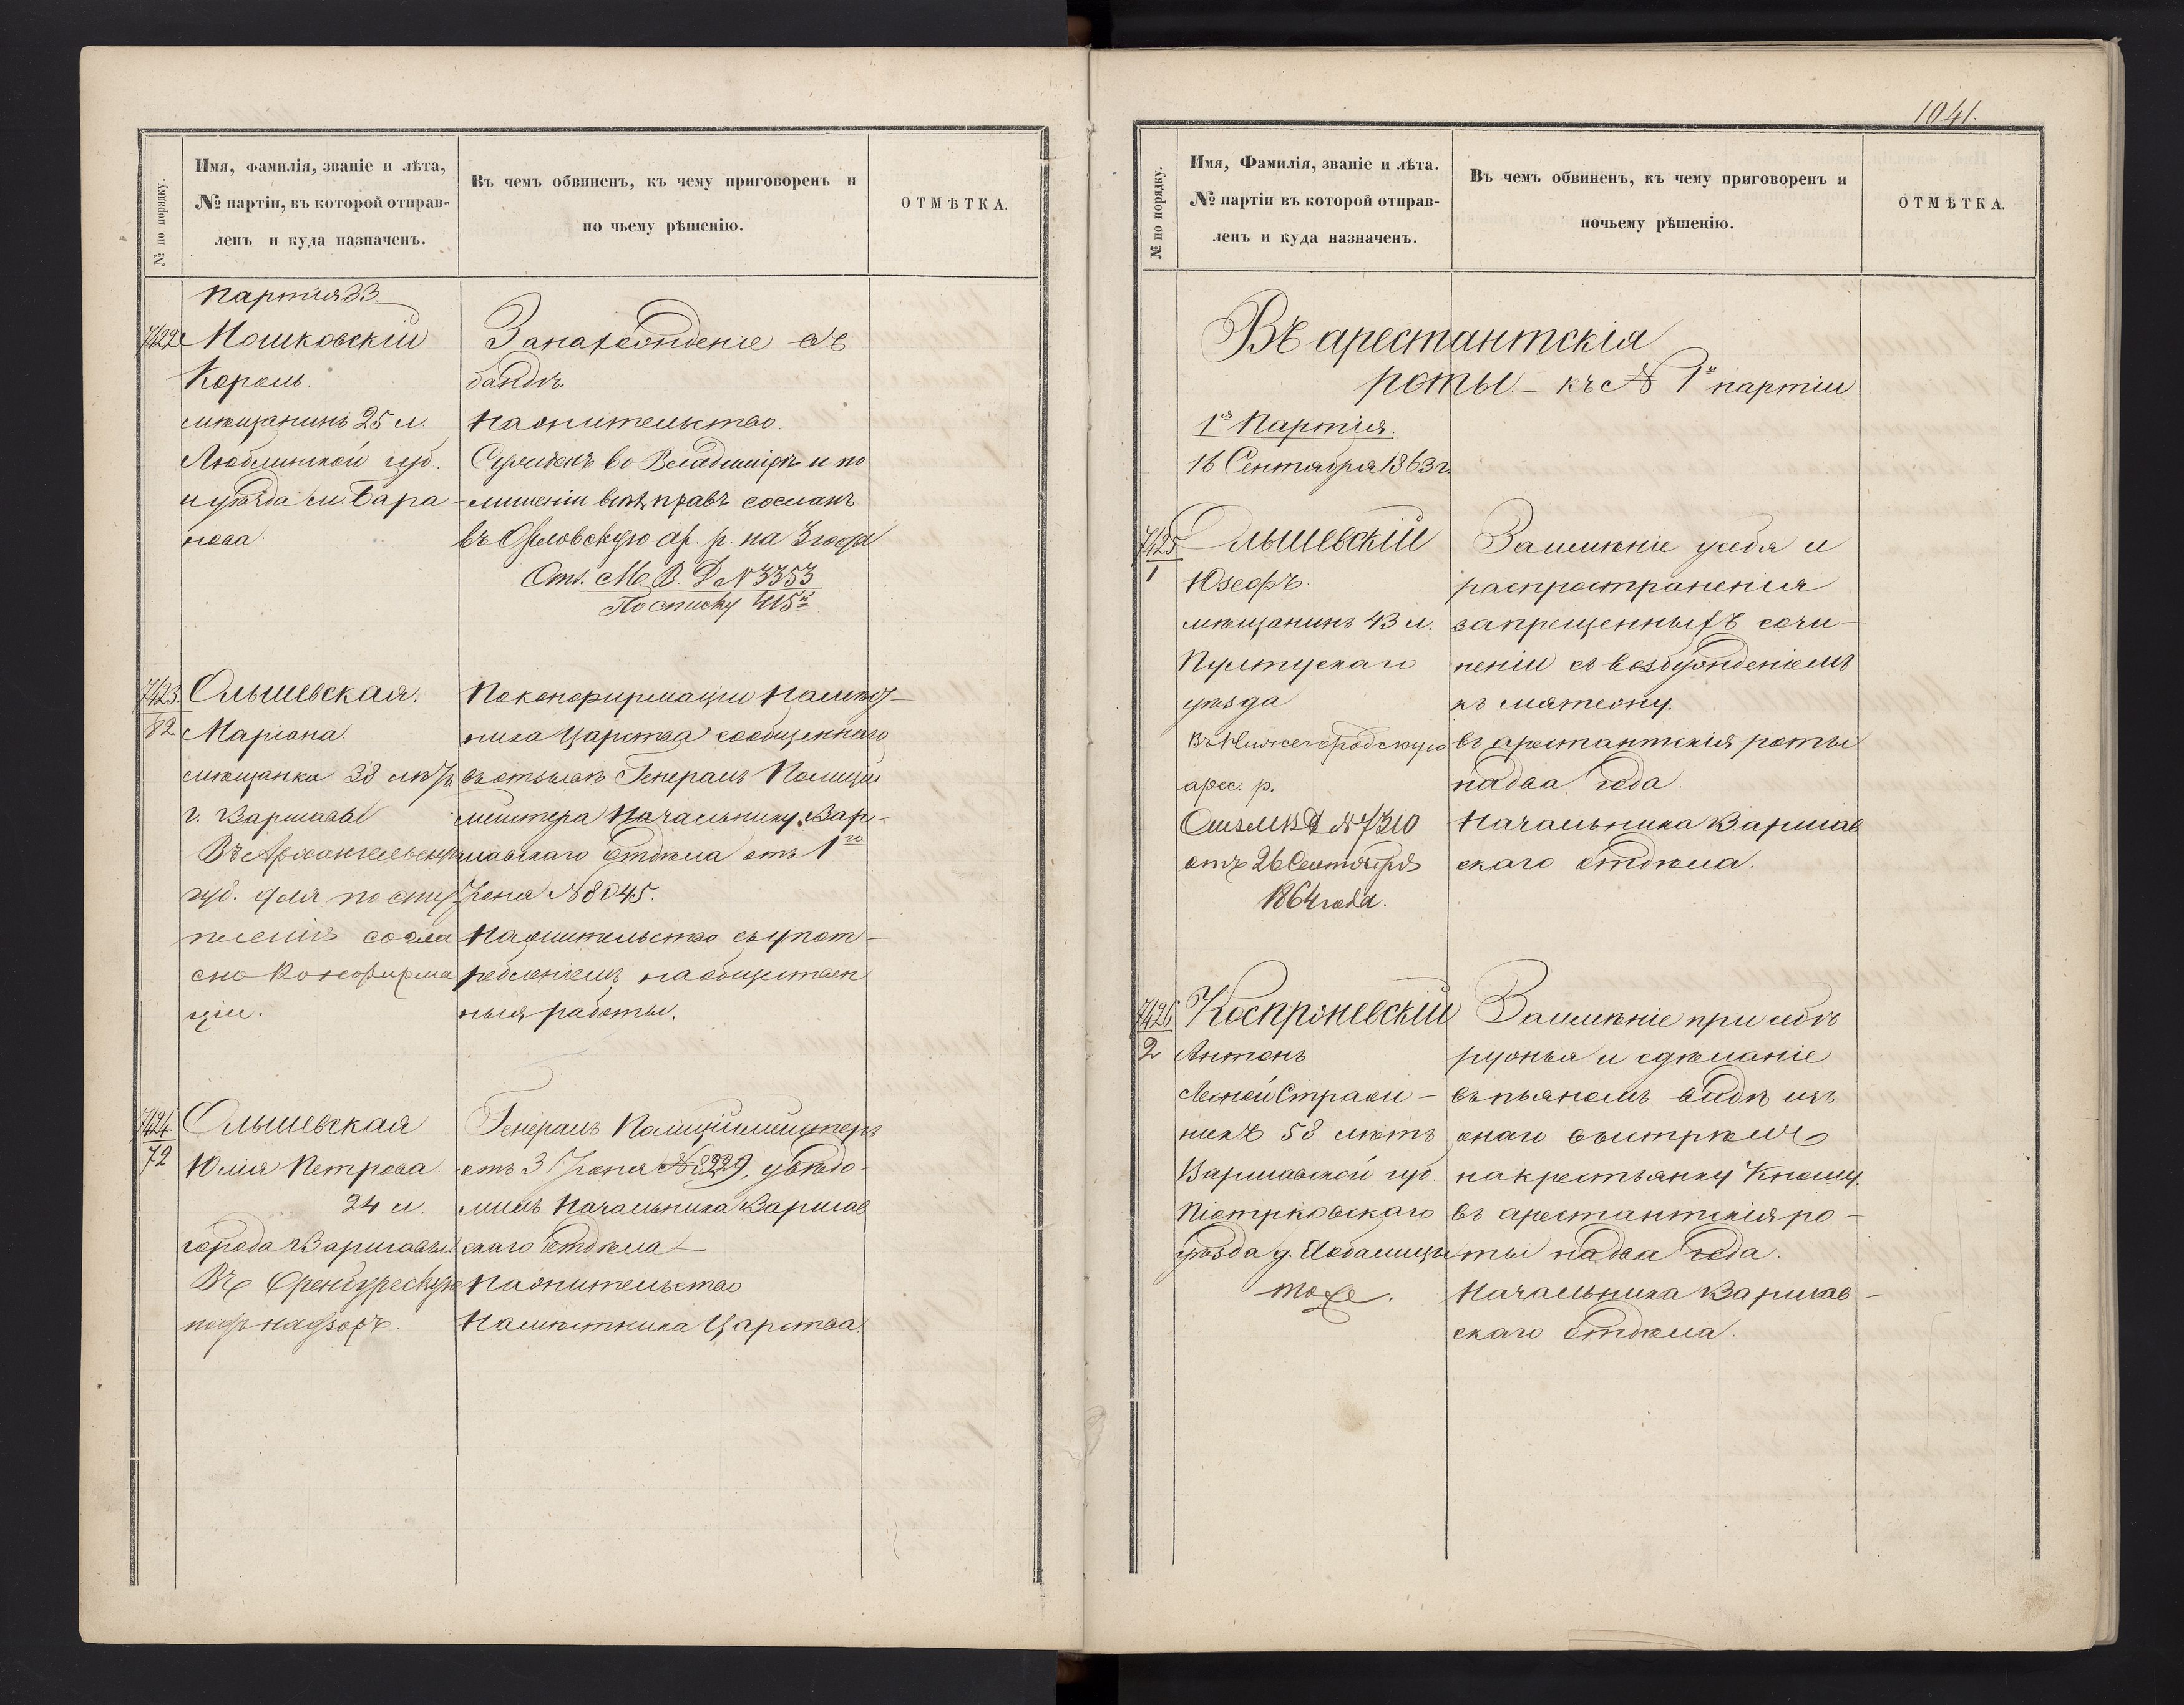 № по порядку.
Имя, фамилія, званіе и лѣта,
№ партіи, въ которой отправ-
ленъ и куда назначенъ.
Въ чемъ обвиненъ, къ чему приговоренъ и
по чьему рѣшенію.
ОТМѢТКА.
Партія 33
7422
Мошковскій
Кароль.
мѣщанинъ 25 л.
Люблинской губ.
и уѣзда м. Бара
нова.
За нахожденіе въ
бандѣ.
На жительство.
Сужденъ во Владимірѣ и по
лишеніи всѣхъ правъ сосланъ
въ Орловскую ар. р. на 3 года
Отз. М. В. Д № 3353
По списку 415й
7423.
82
Ольшевская.
Маріона.
мѣщанка 38 лѣтъ
г. Варшавы
Въ Архангельскую
губ. для поступ
ленія согла
сно Конфирма
ціи.
По конфирмаціи Намѣст-
ника Царства сообщеннаго
въ отзывѣ Генералъ Полиціи
мейстера Начальнику Вар-
шавскаго Отдѣла отъ 1го
Іюня № 8045.
На жительство съ упот-
ребленіемъ на обществен
ныя работы.
7424.
72
Ольшевская
Юлія Петрова.
24 л.
города Варшавы
Въ Оренбургскую
подъ надзоръ.
Генералъ Полиціймейстеръ
отъ 3 Іюня № 8229, увѣдо-
милъ Начальника Варшав
скаго Отдѣла
На жительство
Намѣстника Царства.
1041.
№ по порядку.
Имя, Фамилія, званіе и лѣта.
№ партіи въ которой отправ-
ленъ и куда назначенъ.
Въ чемъ обвиненъ, къ чему приговоренъ и
почьему рѣшенію.
ОТМѢТКА.
Въ арестантскія
роты. – къ № 1й партіи
1я Партія.
16 Сентября 1863 г.
7425
1
Ольшевскій
Юзефъ.
мѣщанинъ 43 л.
Пултускаго
уѣзда
Въ Нижегородскую
арес. р.
Отз МВД № 7310
отъ 26 Сентября
1864 года.
За имѣніе у себя и
распространенія
запрещенныхъ сочи-
неній съ возбужденіемъ
къ мятежу.
въ арестантскія роты
на два года.
Начальника Варшав
скаго отдѣла.
7426
2
Коспржевскій
Антонъ
Лесной Стражн-
никъ 58 лѣтъ
Варшавской губ.
Піотрковскаго
уѣзда д.
тоже.
За имѣніе при себѣ
ружья и сдѣланіе
въ пьяномъ видѣ изъ
онаго выстрѣла
на крестьянку
въ арестантскія ро-
ты на два года.
Начальника Варшав-
скаго отдѣла.